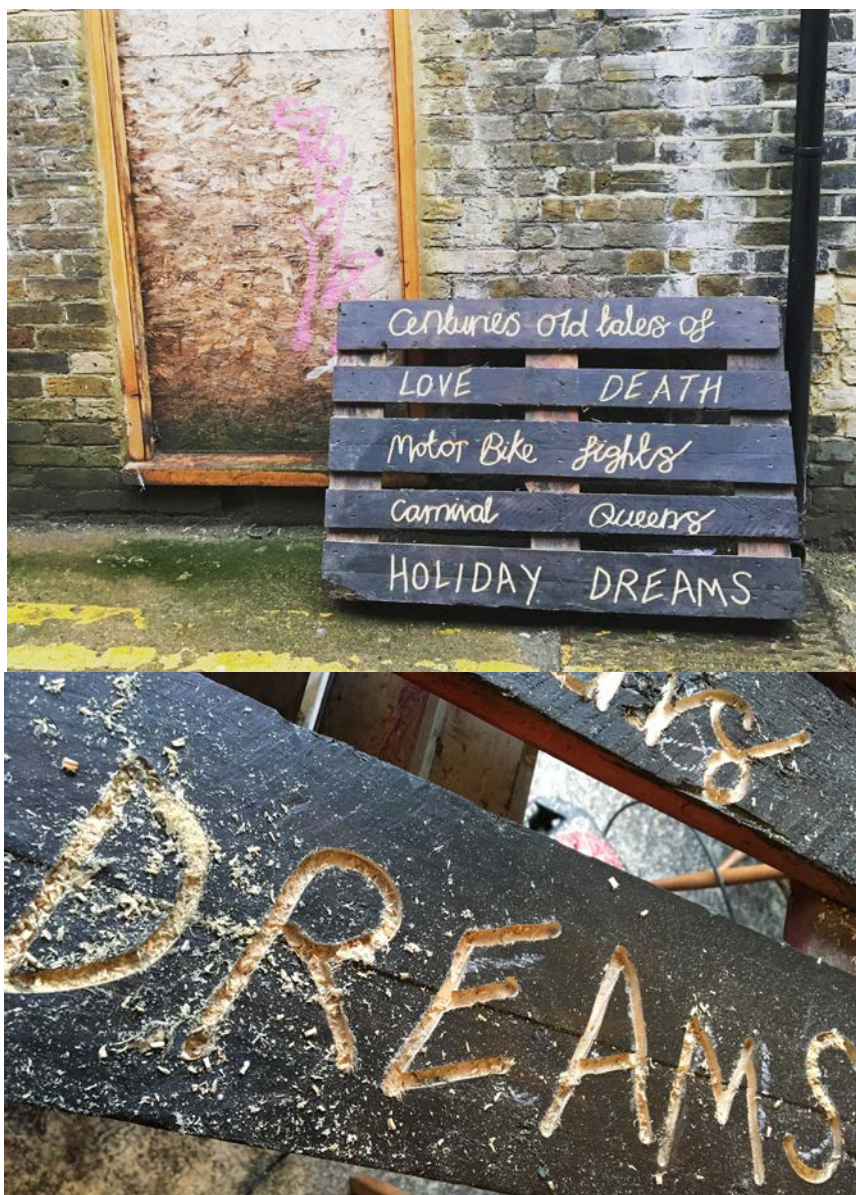 Centuries old tales of
LOVE DEATH
Motor Bike fights
Carnival Queens
HOLIDAY DREAMS
DREAMS